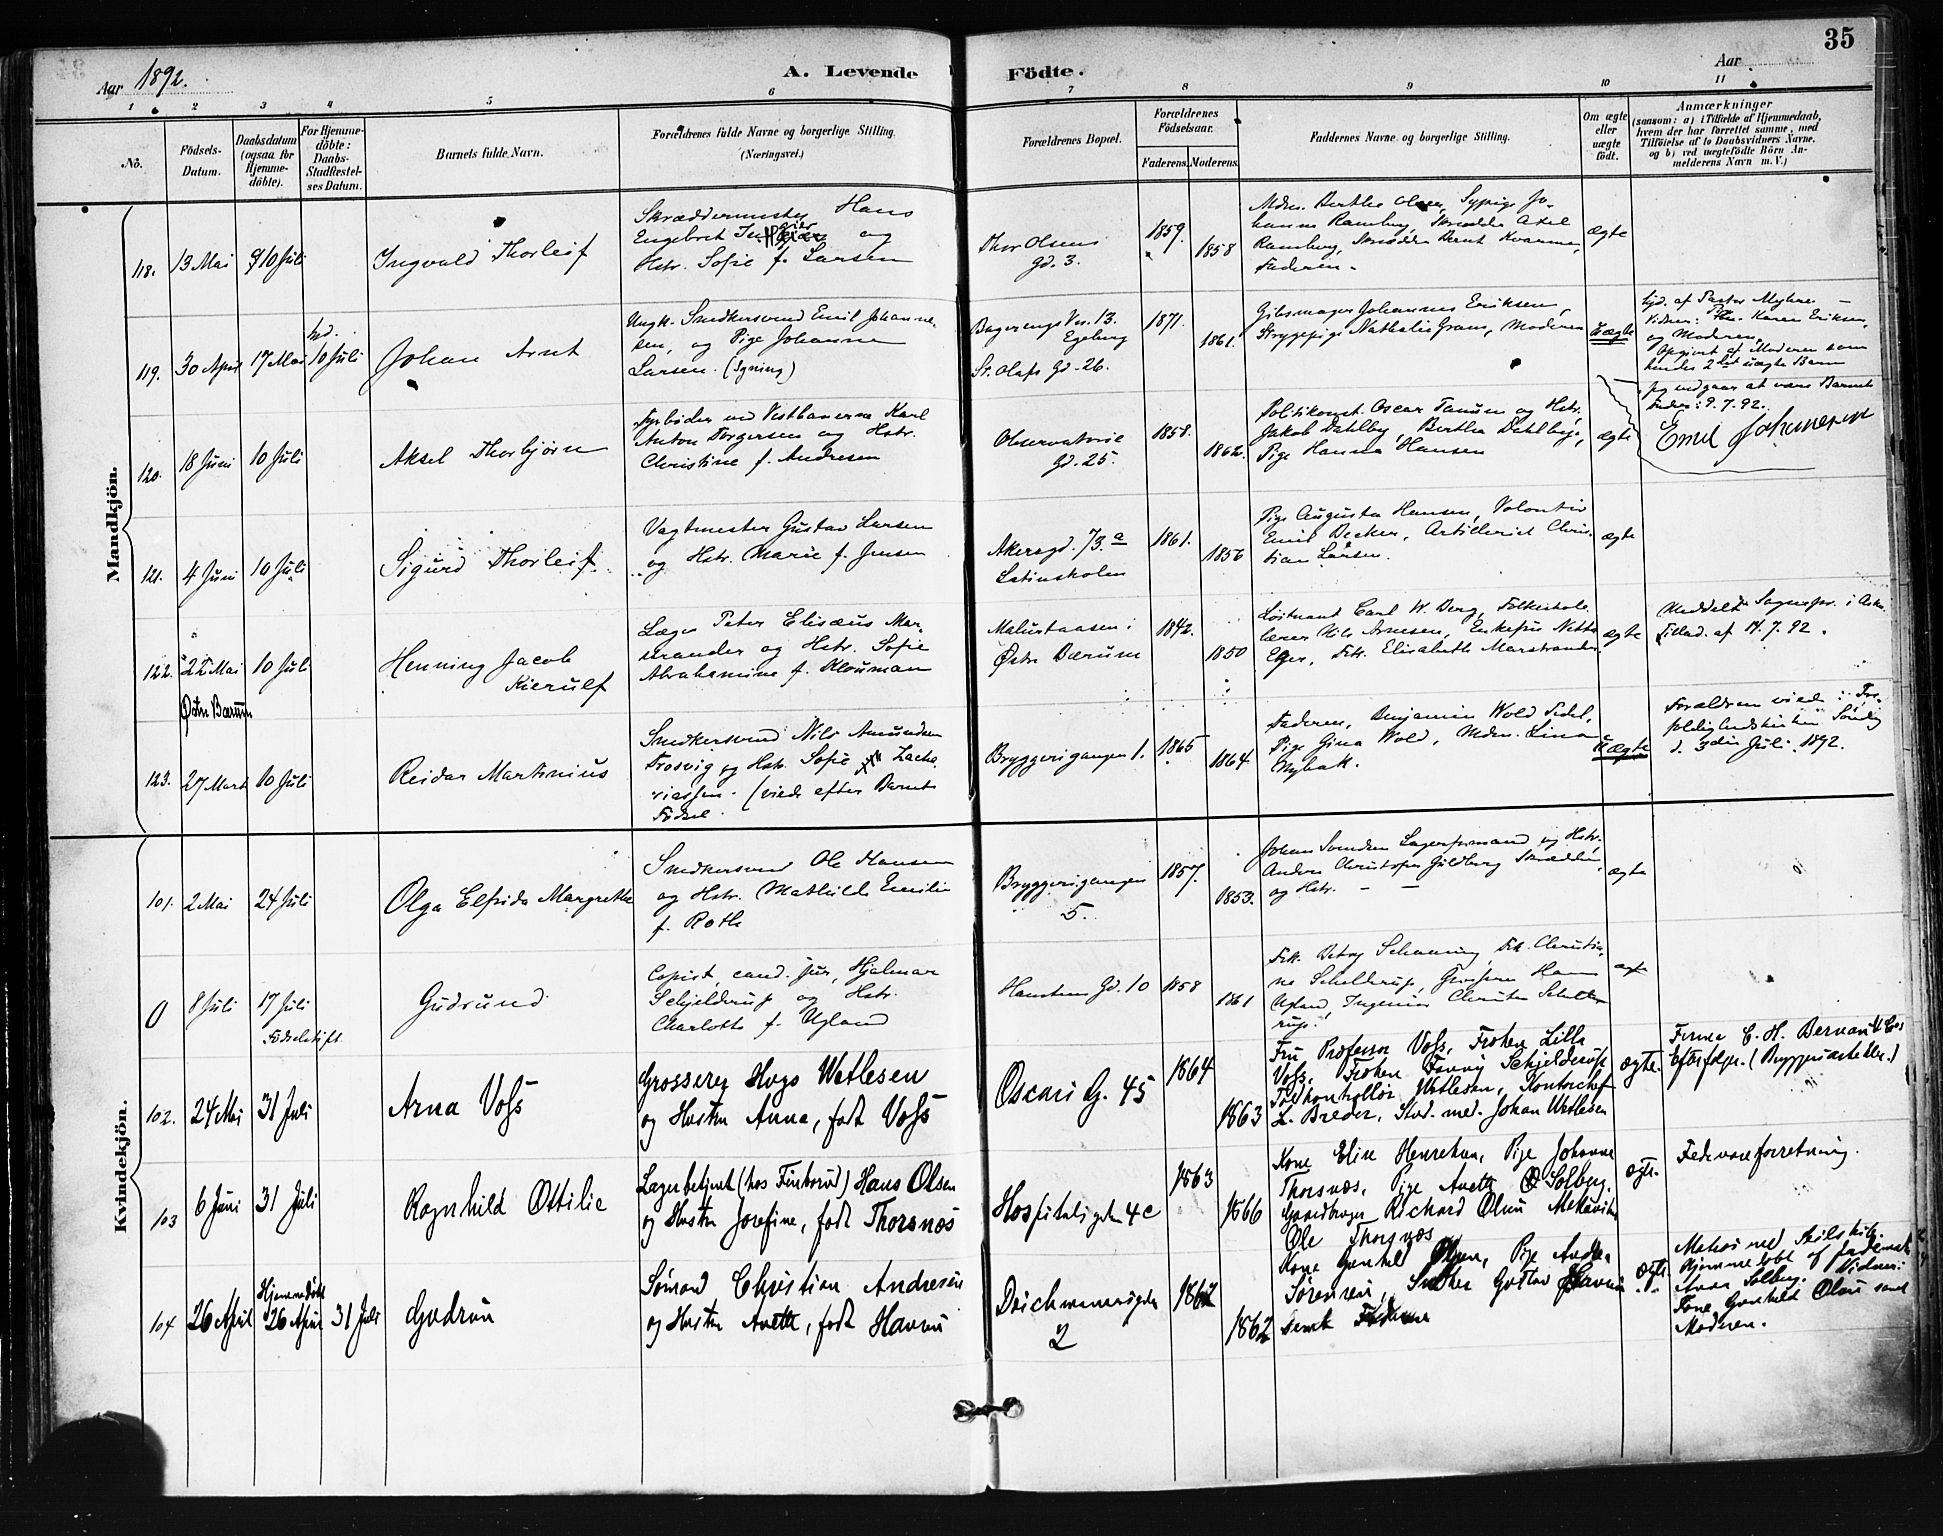 35
Aar 1892.
A. Levende Födte.
Aar
1 2 3 4 5 6 7 8 9 10 11
No.
Födsels-Datum.
Daabsdatum (ogsaa for Hjemme-döbte).
For Hjemme-döbte: Daabs-Stadfæstel-ses Datum.
Barnets fulde Navn.
Forældrenes fulde Navne og borgerlige Stilling.
(Næringsvei.)
Forældrenes Bopæl.
Forældrenes Födselsaar.
Faderens. Moderens.
Faddernes Navne og borgerlige Stilling.
Om ægte eller uægte födt.
Anmærkninger
(saasom: a) i Tilfælde af Hjemmedaab,
hvem der har forrettet samme, med
Tilföielse af to Daabsvidners Navne,
og b) ved uægtefödte Börn An-
melderens Navn m. V.)
Mandkjön.
118. 13 Mai 10 Juli
Ingvald Thorleif
Skræddermester Hans
Engebret og
Hstr. Sofie f. Larsen
Thor Olsens
Gd. 3.
1859.
1858
Mdm. Berthe Olsen, Sypige Jo-
hanne Ramberg, Skrædder Axel
Ramberg, Skrædder Bernt Kvamme,
Faderen.
ægte
119. 30 April 17 Mai 10 Juli
Johan Arnt
Ungk. Smedkersvend Emil Johanne-
sen, og Pige Johanne
Larsen. (Syning)
Bagerengs Vei. 13.
Egeberg
St. Olafs Gd. 26.
1871.
1861.
Gibsmager Johannes Eriksen,
Strygepige Nathalie Gram, Moderen
Uægte
Hjd. af Pastor Myhre
Vidner: Karen Eriksen,
og Moderen.
Opgivet af Moderen som
hendes 2det uægte Barn
Jeg vedgaar at være Barnets
Fader: 9.7.92.
Emil Johannesen
120. 18 Juni 10 Juli
Aksel Thorbjørn
Fyrbøder ved Vestbanerne Karl
Anton Torgersen og Hstr.
Christine f. Andresen
Observatorie
Gd. 25.
1858.
1862.
Politikonst. Oscar Tanum og Hstr.
Jakob Dahlby, Berthe Dahlby,
Pige Hanna Hansen
ægte
121. 4 Juni 10 Juli
Sigurd Thorleif
Vagtmester Gustav Larsen
og Hstr. Marie f. Jensen
Akersgd. 73.a
Latinskolen
1861.
1856
Pige Augusta Hansen, Volontør
Emil Becker, Artillerist Chris-
tian Larsen.
ægte
122. 22 Mai 10 Juli
Østre Bærum
Henning Jacob
Kierulf
Læge Peter Elisæus Mar-
strander og Hstr. Sofie
Abrahamine f. Klouman
Østre Bærum
1842.
1850
Løitnant Carl W. Berg, Folkeskole-
lærer Nils Arnesen, Enkefru Netta
Eger, Frk. Elisabeth Marstrander
ægte
Meddelt Sognepr. i Asker
Tillad. af 14.7.92.
123. 27 Marts 10 Juli
Reidar Martinius
Smedkersvend Nils Amundsen
Trosvig og Hstr. Sofie Zacha-
riassen. (viede efter Barnets
Fødsel.
Bryggerigangen 1.
1865
1864
Faderen, Benjamin Wold
Pige Gina Wold, Mdm. Lina
Nybak.
Uægte
Forældrene viede i Tre-
foldighedskirken Søndag
d. 3die Juli 1892.
Kvindekjön.
101. 2 Mai 24 Juli
Olga Elfrida Margrethe
Smedkersvend Ole Hansen
og Hstr. Mathilde Emilie
f. Roth
Bryggerigangen
5.
1857.
1853.
Johan Svendsen Lagerformand og Hstr.
Anders Christofer Guldberg
og Hstr. — —
ægte
0 8 Juli 17 Juli
Fødselsstift.
Gudrund
Copist, cand. jur, Hjalmar
Schjelderup og Hstr.
Charlotte f. Ugland
Hansteens Gd. 10
1858
1861
Frk. Betsy Schanning, Frk. Christia-
ne Schelderup, Grosserer Hans
Ugland, Ingeniør Christen Schelde-
rup.
ægte
102. 24 Mai 31 Juli
Arna Voss
Grosserer Hugo Wetlesen
og Hustru Anna, født Voss
Oscars G. 45
1864
1863
Fru Professor Voss, Frøken Lilla
Voss, Frøken Fanny Schjelderup
Toldkontrollør Wetlesen, Kontorchef
L. Breder, Stud. med. Johan Wetlesen
ægte.
Firma C. H.
Efterfølger.
103 6 Juni 31 Juli
Ragnhild Ottilie
Lagerbetjent (hos Finborud) Hans Olsen
og Hustru Josefine, født Thorsnæs
Hospitalsgaden 4c
1863
1866
Kone Elise Henriksen, Pige Johanne
Thorsnæs, Pige Anette Solberg,
Gaardbruger Richard Olsen
Ole Thorsnæs
ægte.
Fedevareforretning.
104 26 April Hjemmedøbt 26 April 31 Juli
Gudrun
Sømand Christian Andresen
og Hustru Anette, født Havnes
Deichmannsgaden
2
1862
1862
Kone Gunhild Olsen, Pige
Sørensen, Snedker Gustav
samt Faderen
ægte.
Matros med Seilskib.
Hjemmedøbt af Jordemor
Anna Solberg. Vidner:
Kone Gunhild Olsen samt
Moderen.